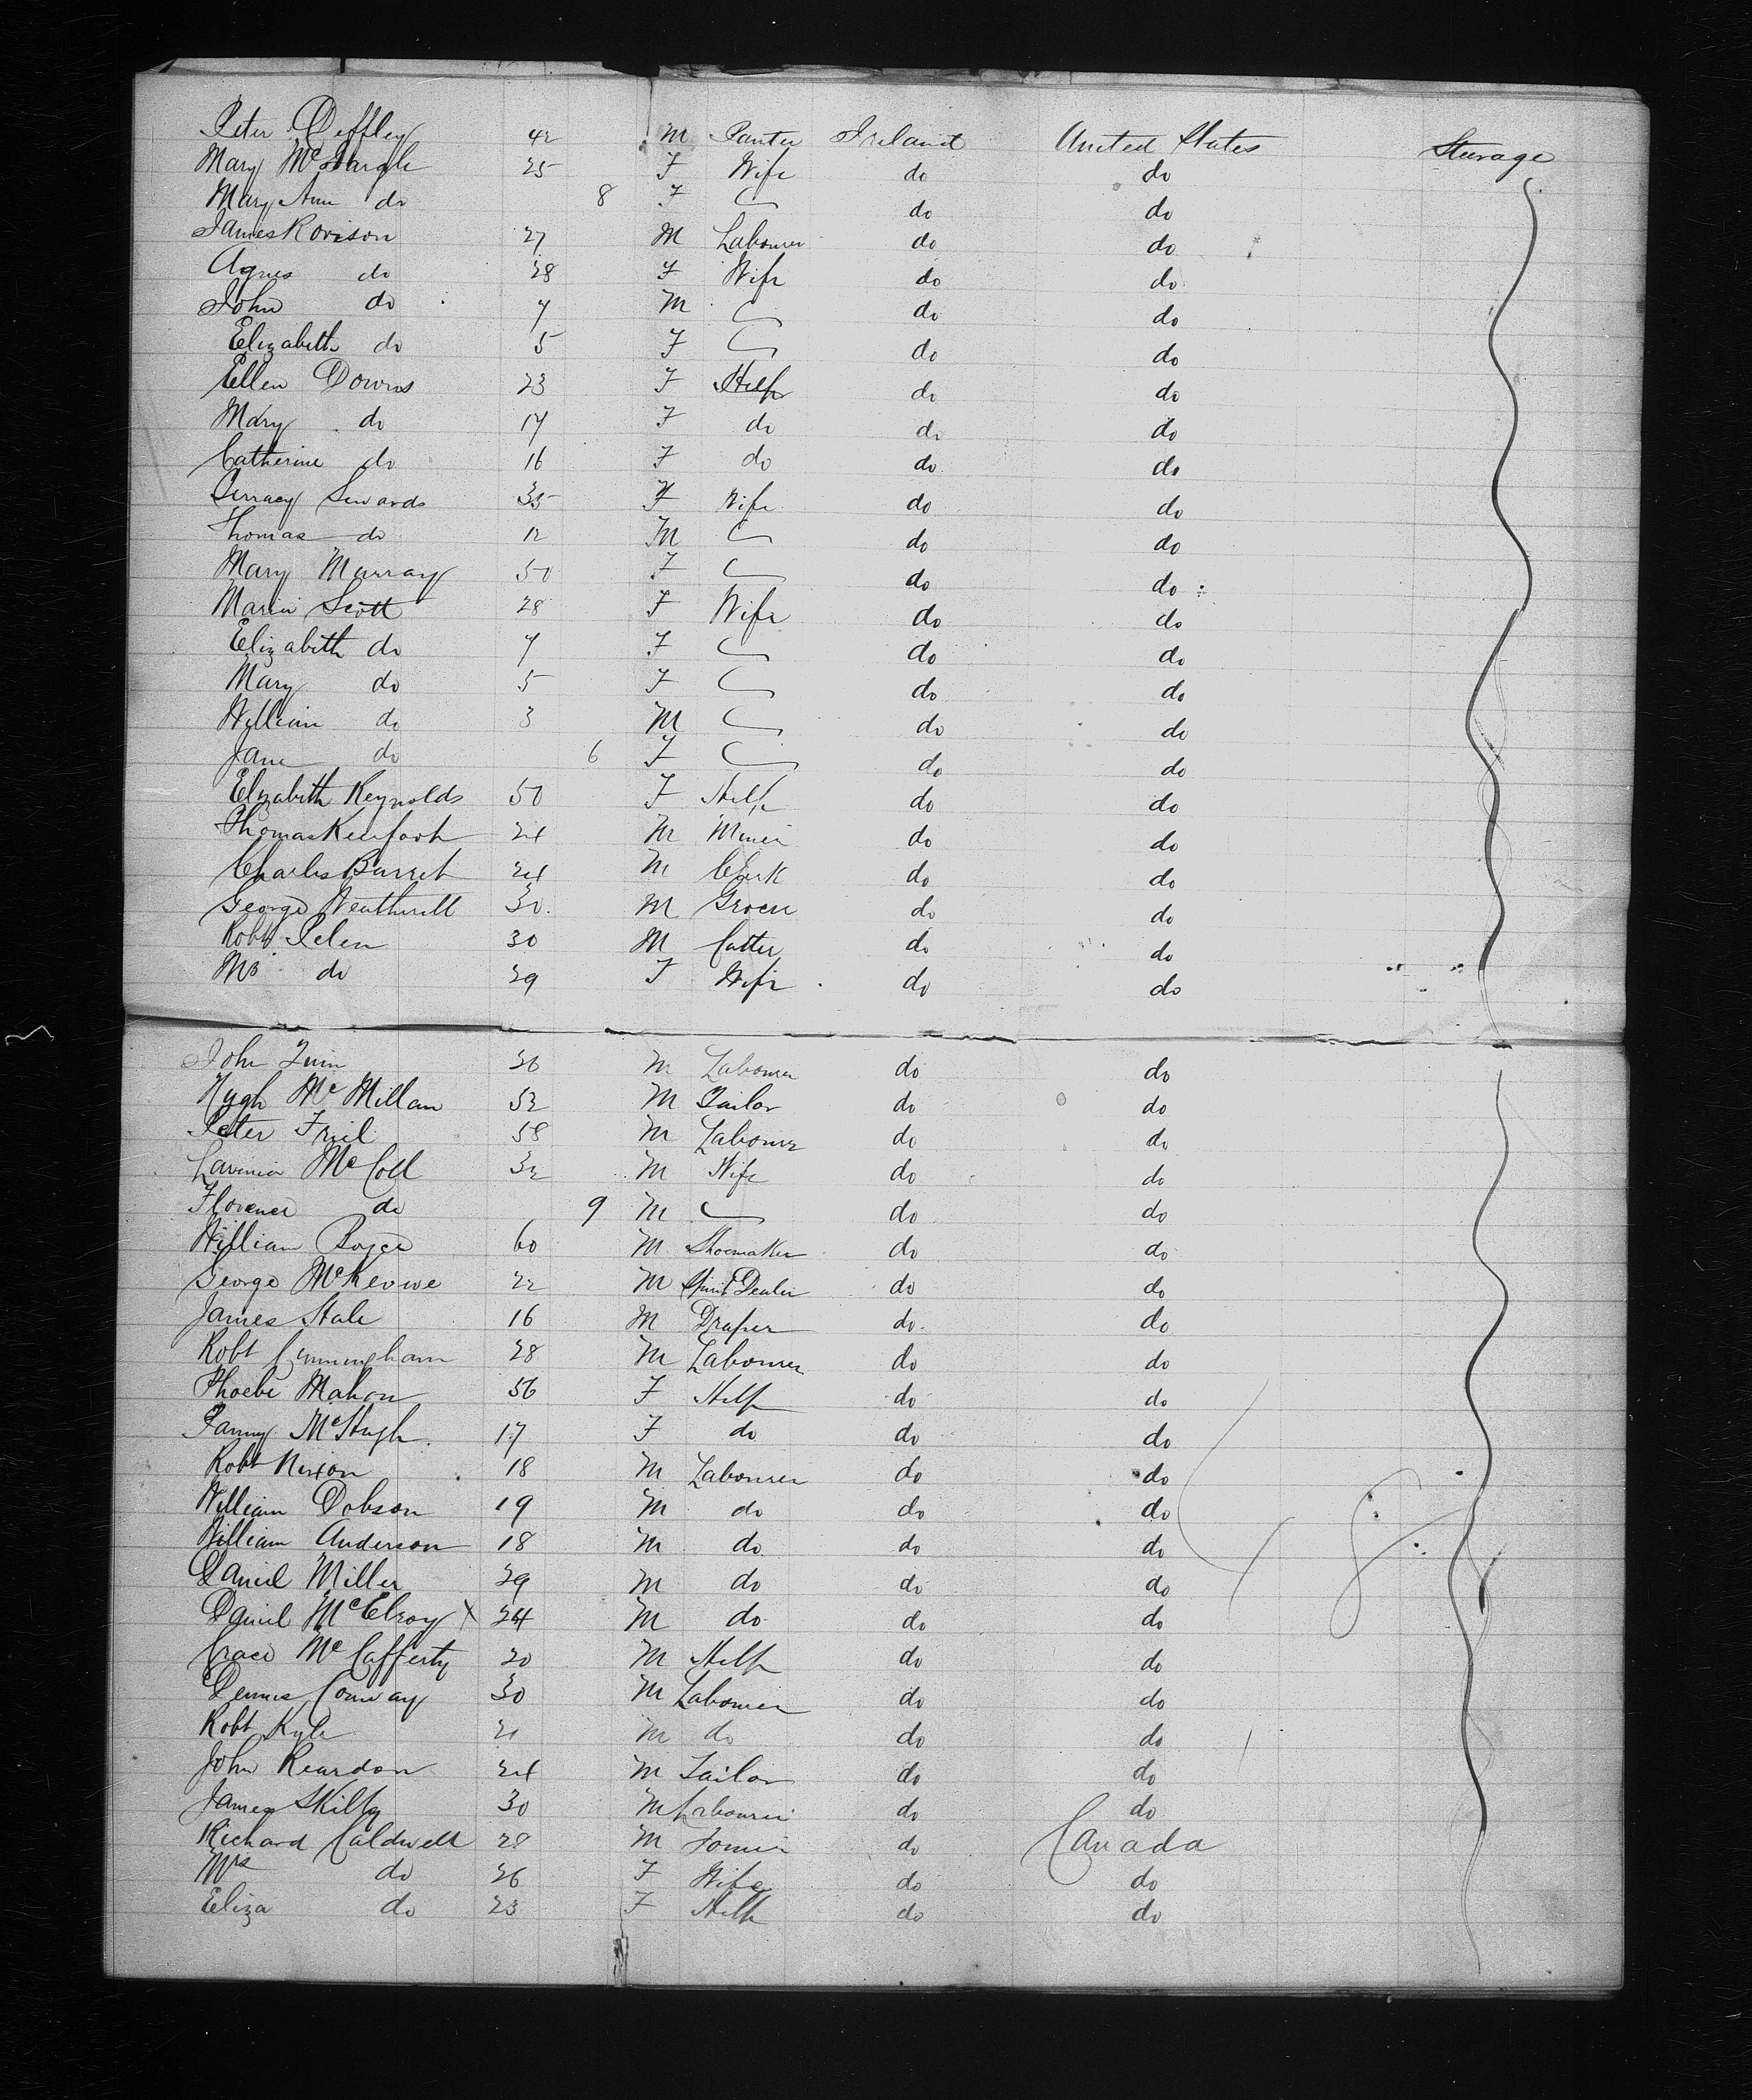 Peter Deffley 42 M Panter Ireland United States Steerage
Mary McGargle 25 F Wife do do
Mary Ann do 8 F do do
James Rovison 27 M Labourer do do
Agnes do 28 F Wife do do
John do 7 M do do
Elizabeth do 5 F do do
Ellen Downs 23 F Help do do
Mary do 17 F do do do
Catherine do 16 F do do do
Sewards 35 F Wife do do
Thomas do 12 M do do
Mary Murray 50 F do do
Maria Scott 28 F Wife do do
Elizabeth do 7 F do do
Mary do 5 F do do
William do 3 M do do
Jane do 6 F do do
Elizabeth Reynolds 50 F Help do do
Thomas 24 M Miner do do
Charles Barret 24 M Clerk do do
George Weatherell 30 M Grocer do do
Robt Pelen 30 M Cutter do do
Mrs do 29 F Wife do do
John Quin 26 M Labourer do do
Hugh McMillan 52 M Tailor do do
Peter Friel 58 M Labourer do do
Lavinia McColl 32 M Wife do do
Florence do 9 M do do
William Boyce 60 M Shoemaker do do
George McKevwe 22 M Spirit Dealer do do
James Hale 16 M Draper do do
Robt Cunningham 28 M Labourer do do
Phoebe Mahon 56 F Help do do
Fanny McHugh 17 F do do do
Robt Nixon 18 M Labourer do do
William Dobson 19 M do do do
William Anderson 18 M do do do
Daniel Miller 29 M do do do
Daniel McElroy X 24 M do do do
Grace McCafferty 20 M Help do do
Dennis Conway 30 M Labourer do do
Robt Kyle 21 M do do do
John Reardon 24 M Tailor do do
James Skilly 30 M Labourer do do
Richard Caldwell 28 M do Canada
Mrs do 26 F Wife do do
Eliza do 23 F Help do do
48